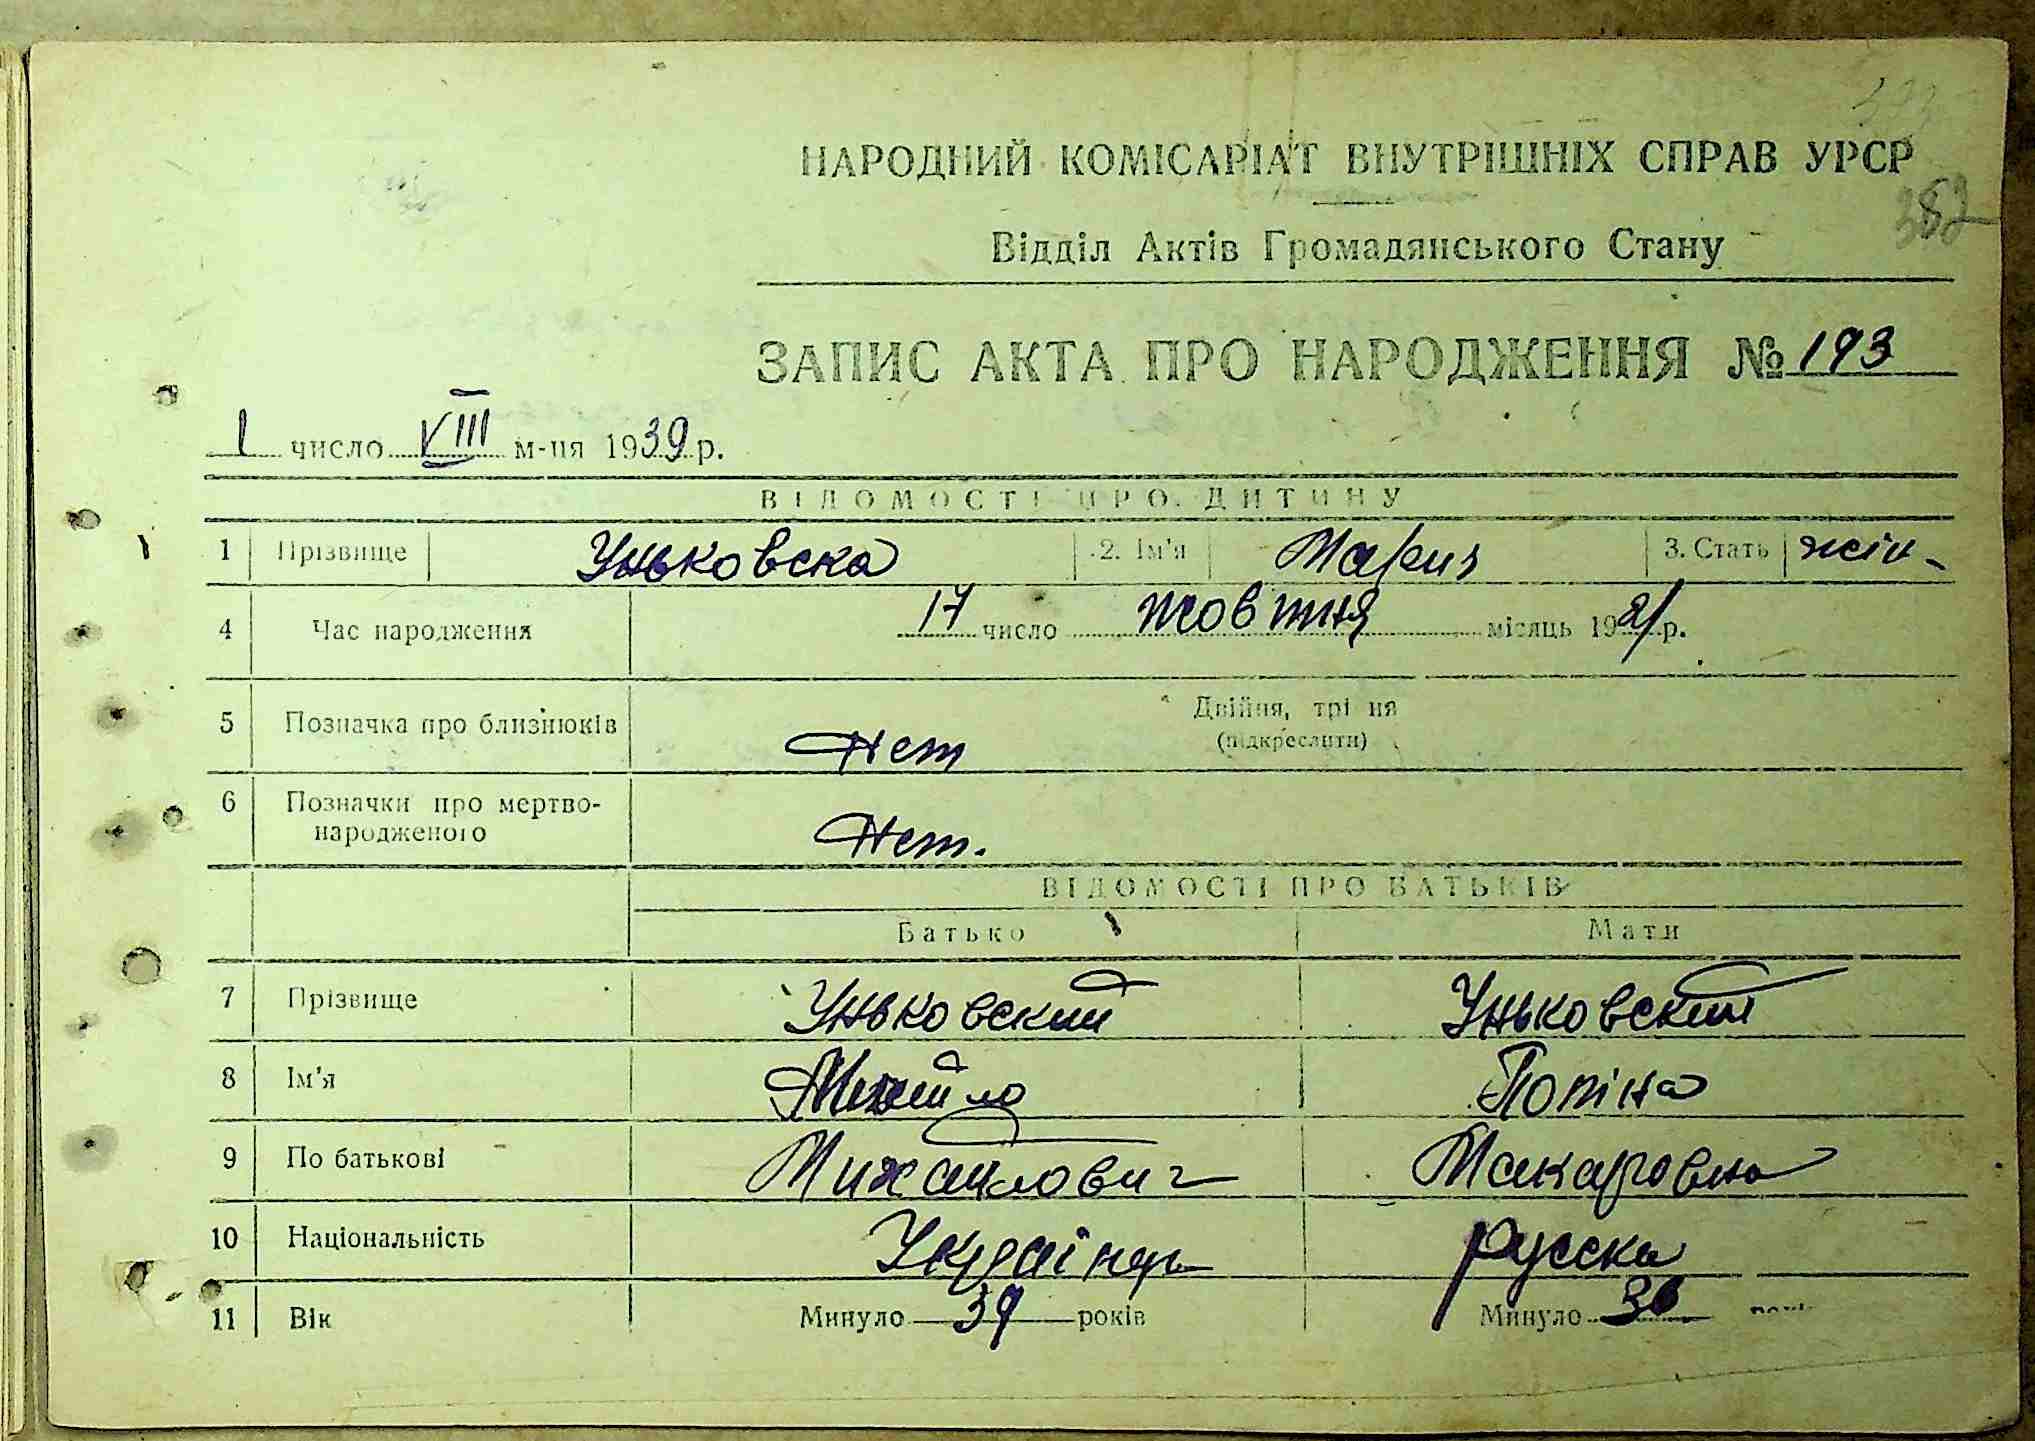 352
НАРОДНИЙ КОМІСАРІАТ ВНУТРІШНІХ СПРАВ УРСР
Відділ Актів Громадянського Стану
ЗАПИС АКТА ПРО НАРОДЖЕННЯ № 193
1 число VIII м-ця 1939 р.
ВІДОМОСТІ ПРО ДИТИНУ
1 Прізвище Уньковска 2. Ім'я Мария 3. Стать жін-
4 Час народження 17 число жовтня місяць 1921 р.
5 Позначка про близнюків нет Двійня, трійня
(підкреслити)
6 Позначки про мертво-
народженого нет.
ВІДОМОСТІ ПРО БАТЬКІВ
Батько Мати
7 Прізвище Уньковский Уньковский
8 Ім'я Михайло
9 По батькові Михайлович Макаровна
10 Національність Українець Русска
11 Вік Минуло 39 років Минуло 36 років